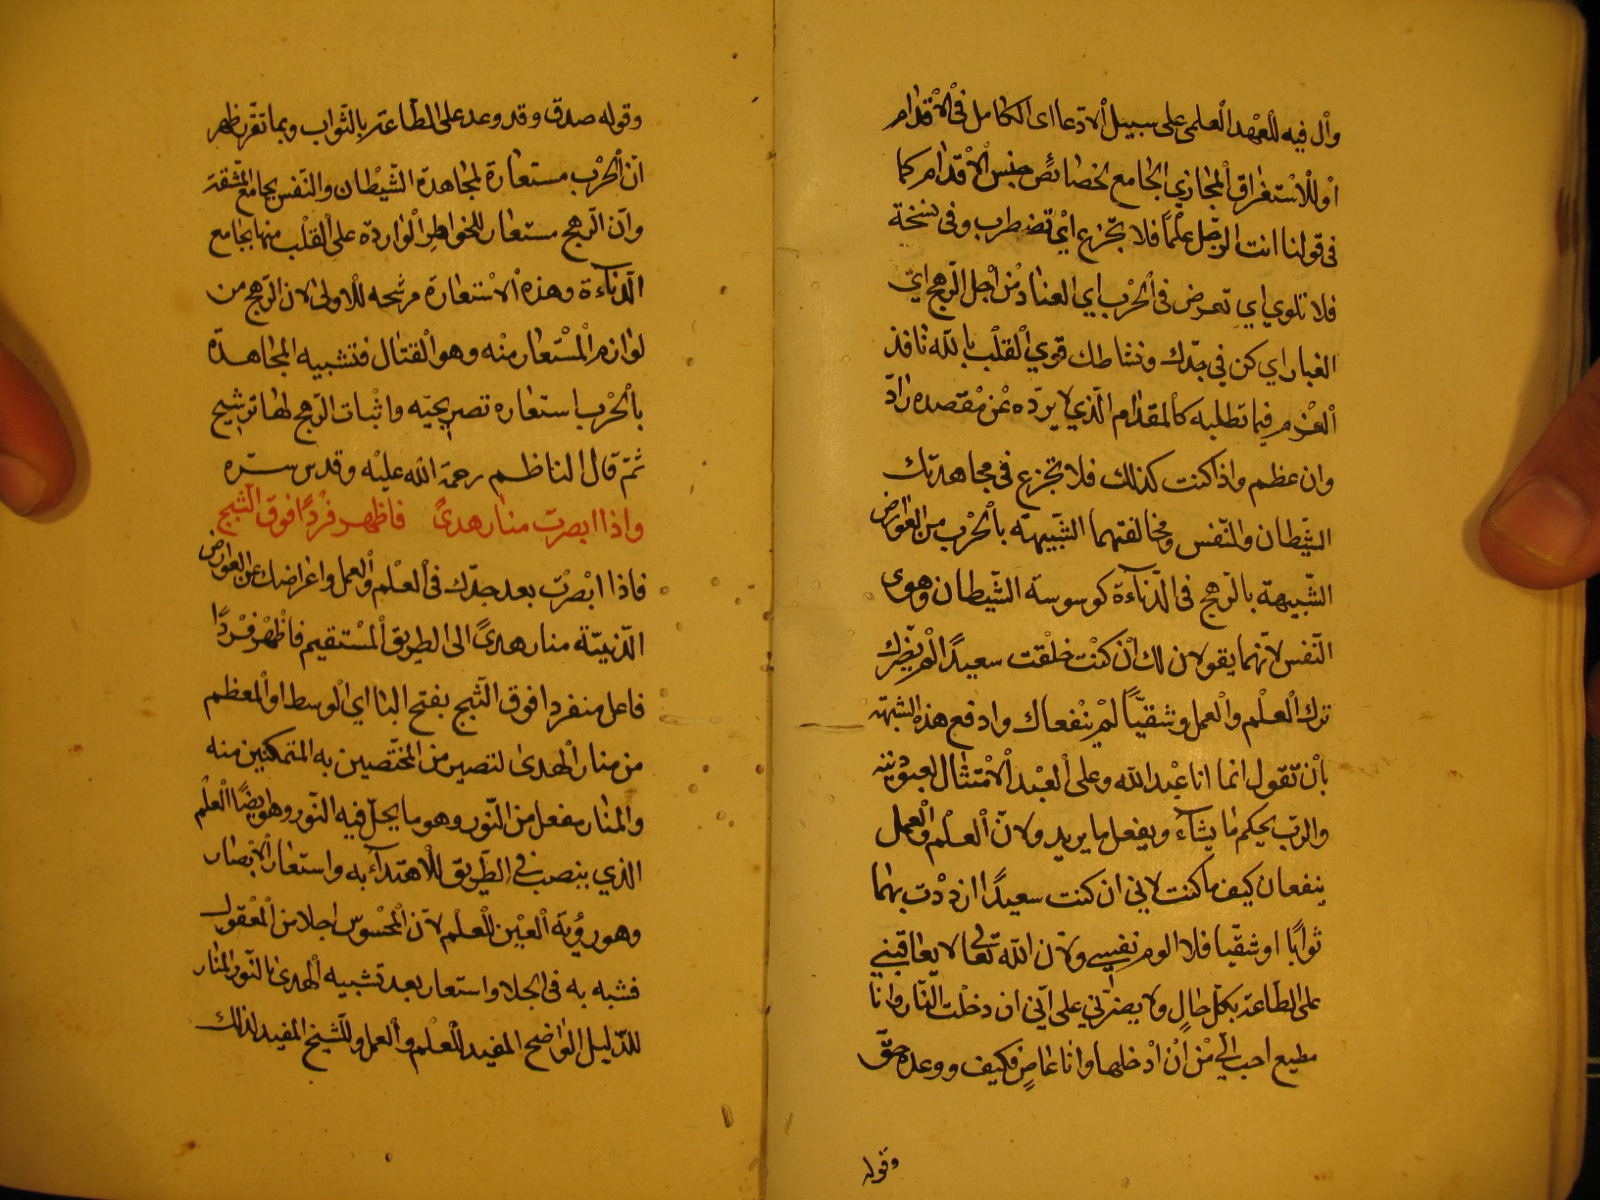 وأل فيه للعهد العلمي على سبيل الادعا اى الكامل في الاقدام
او للاستغراق المجازي الجامع لخصائص جنس الاقدام كما
في قولنا انت الرجل علما فلا تجزع اي تضطرب وفي نسخة
فلا تلوي اي تعرض في الحرب اي العناد من اجل الرهج اي
الغبار اي كن في جدك ونشاطك قوي القلب بالله نافذ
العزم فيما تطلبه كالمقدام الذي لا يرده عن مقصده راد
وان عظم واذا كنت كذلك فلا تجزع في مجاهدتك
الشيطان والنفس ومخالفتهما الشبيهة بالحرب من العوارض
الشبيهة بالرهج في الدناءة كوسوسة الشيطان وهوى
النفس لانهما يقولان لك ان كنت خلقت سعيدا لم يضرك
ترك العلم والعمل وشقيا لم ينفعاك وادفع هذه الشبهة
بان تقول انما انا عبد الله وعلى العبد الامتثال لعبوديته
والرب يحكم ما يشآء ويفعل ما يريد ولان العلم والعمل
ينفعان كيف ما كنت لاني ان كنت سعيدا ازددت بهما
ثوابا او شقيا فلا الوم نفسي ولان الله تعالى لا يعاقبني
على الطاعة بكل حال ولا يضرني على اني ان دخلت النار وانا
مطيع احب الي من ان ادخلها وانا عاص فكيف ووعده حق
وقوله
وقوله صدق وقد وعد على الطاعة بالثواب وبما تقرر ظهر
ان الحرب مستعارة لمجاهدة الشيطان والنفس بجامع المشقة
وان الرهج مستعار للخواطر الواردة على القلب منها بجامع
الدناءة وهذه الاستعارة مرشحه للاولى لان الرهج من
لوازم المستعار منه وهو القتال فتشبيه المجاهدة
بالحرب استعاره تصريحيه واثبات الرهج لها ترشيح
ثم قال الناظم رحمة الله عليه وقدس سره
واذا ابصرت منار هدى فاظهر فردا فوق الثبج
فاذا ابصرت بعد جدك في العلم والعمل واعراضك عن العوارض
الدنية منار هدى الى الطريق المستقيم فاظهر فردا
فاعل منفردا فوق الثبج بفتح البا اي الوسط او المعظم
من منار الهدى لتصير من المختصين به المتمكنين منه
والمنار مفعل من النور وهو ما يحل فيه النور وهو ايضا العلم
الذي ينصب في الطريق للاهتدآء به واستعار الابصار
وهو رؤية العين للعلم لان المحسوس اجلا من المعقول
فشبه به في الجلا واستعار بعد تشبيه الهدى بالنور المنار
للدليل الواضح المفيد للعلم والعمل وللشيخ المفيد لذلك